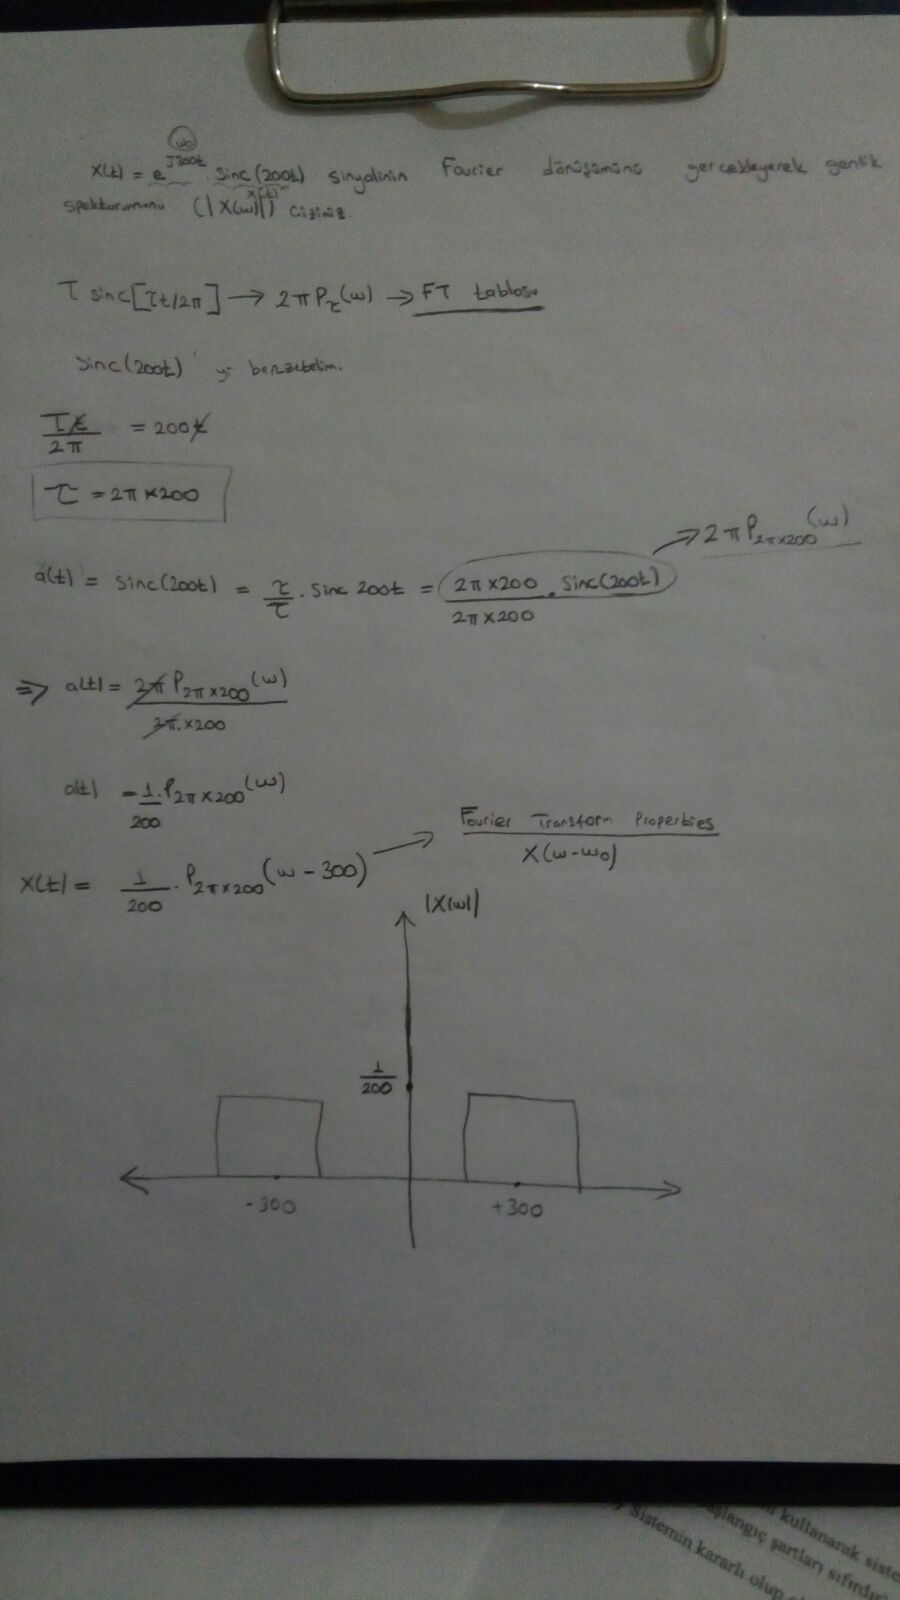 ω₀
X(t) = e^{J300t} . sinc(200t) sinyalinin Fourier dönüşümünü gerçekleyerek genlik
spekturumunu (|X(ω)|) çiziniz.
x(t)
τ sinc[τt/2π] → 2πP_τ(ω) → FT tablosu
sinc(200t)' yi benzetelim.
τt/2π = 200t
τ = 2π×200
a(t) = sinc(200t) = τ/τ . sinc 200t = 2π×200 . sinc(200t) / 2π×200 ⇒ 2πP_{2π×200}(ω)
⇒ a(t) = 2πP_{2π×200}(ω) / 2π.×200
a(t) = 1/200 . P_{2π×200}(ω)
X(t) = 1/200 . P_{2π×200}(ω - 300) → Fourier Transform Properties
X(ω-ω₀)
|X(ω)|
1/200
-300
+300
kullanarak siste
başlangıç şartları sıfırdır
) Sistemin kararlı olup